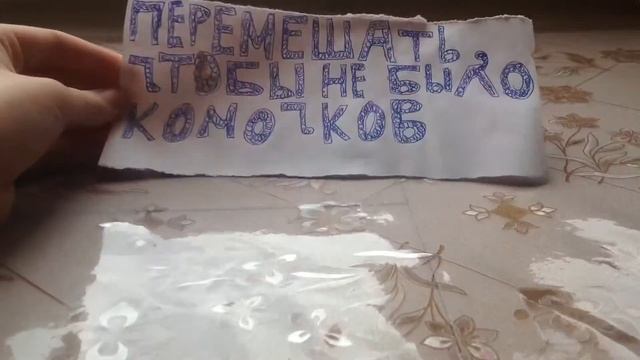 ПЕРЕМЕШАТЬ
ЧТОБЫ НЕ БЫЛО
КОМОЧКОВ